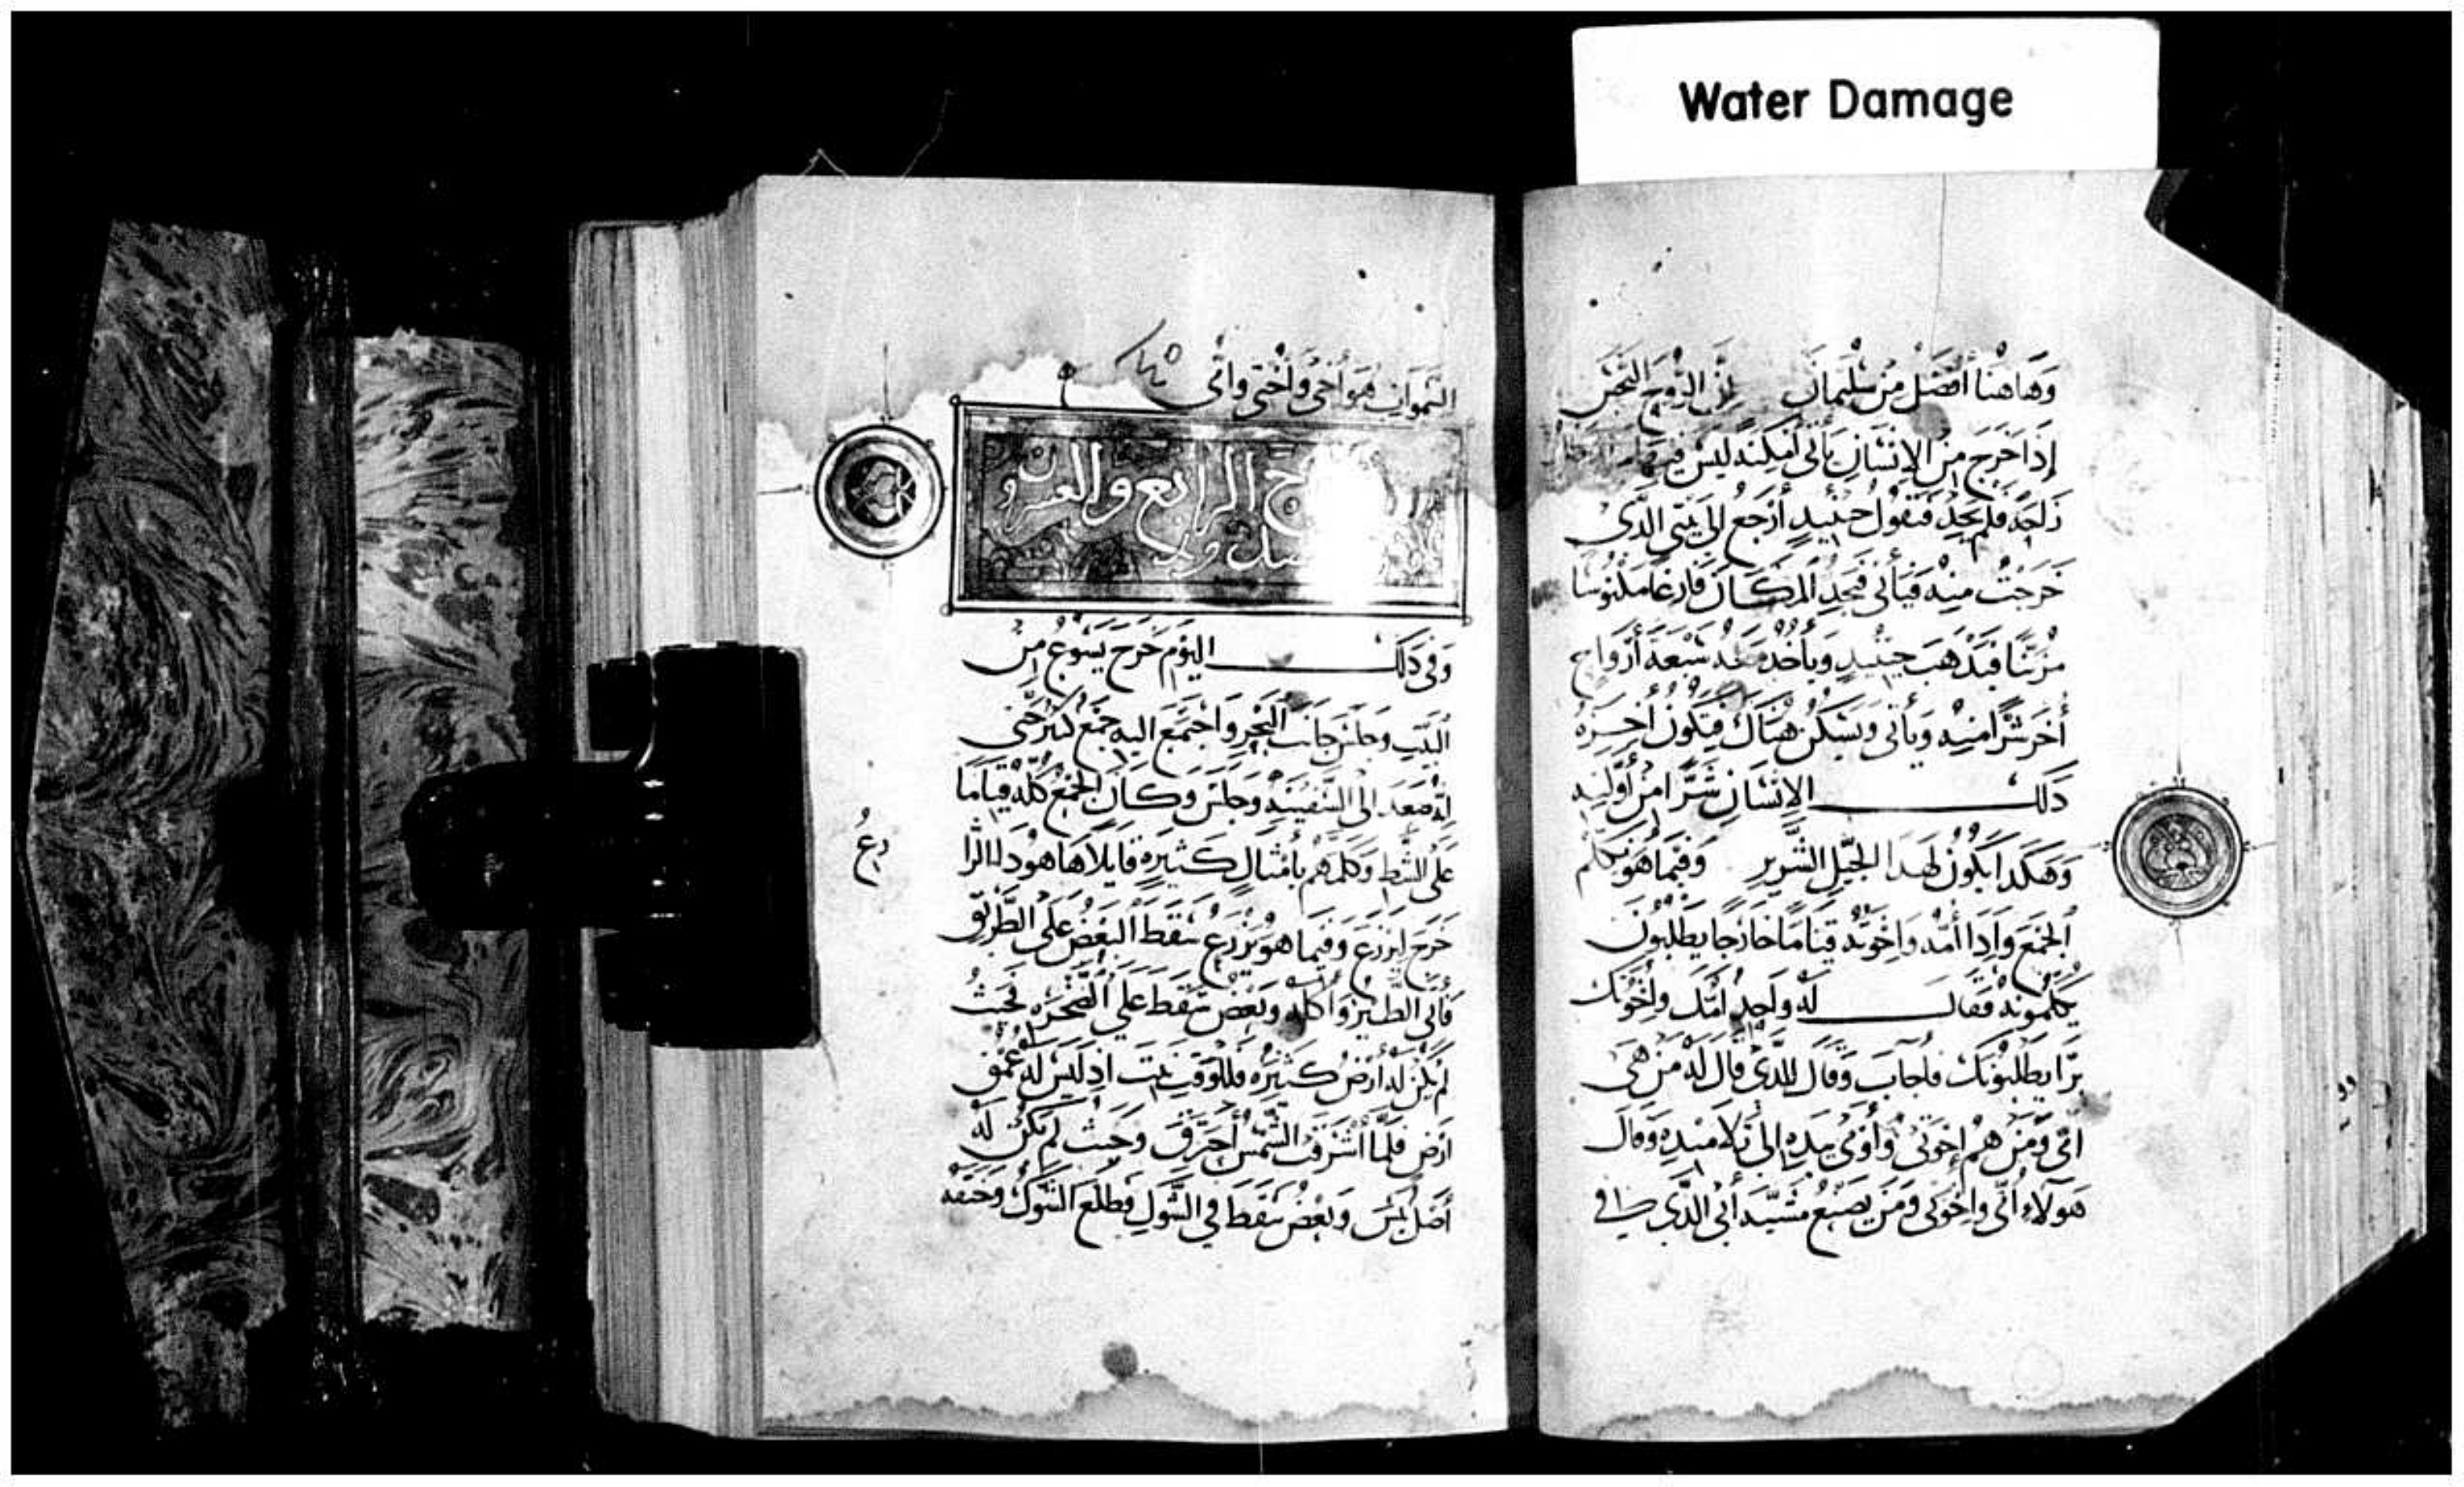 Water Damage
وهاهنا أفضل من سليمان لأن الروح النجس
إذا خرج من الإنسان يأتي أمكنه ليس فيها
فلم يجد فيقول حينيد أرجع إلى بيتي الدي
خرجت منه فيأتي فيجد المكان فارغا مكنوسا
مزينا فيدهب حينيد ويأخد معه سبعه أرواح
أخر شرا منه ويأتي ويسكن هناك فيكون أخره
دلك الإنسان شرا من أوليه
وهكدا يكون لهدا الجيل الشرير وفيما هو يكلم
الجمع وإدا أمه وإخوته قياما خارجا يطلبون
يكلمونه فقال له واحد امك وإخوتك
برا يطلبونك فأجاب وقال للدي قال له من هي
امي ومن هم إخوتي وأومى بيده إلى تلاميده وقال
هولاء أمي وإخوتي ومن يصنع مشيه أبي الدي في
السموات هو أخي وأختي وامي
الرابع والعشرون
وفي دلك اليوم خرج يسوع من
البيت وجلس جانب البحر واجتمع اليه جمع كثير حتى
إنه صعد إلى السفينه وجلس وكان الجمع كله قياما
على الشط وكلمهم بأمثال كثيره قايلا ها هودا الزا
رع
خرج ليزرع وفيما هو يزرع سقط البعض على الطريق
فأتى الطير وأكله وبعض سقط على الصخره فحيث
لم يكن له أرض كثيره فللوقت نبت اد ليس له عمق
ارض فلما أشرقت الشمس أحترق وحيث لم يكن له
أصل يبس وبعض سقط في الشوك فطلع الشوك وخنقه